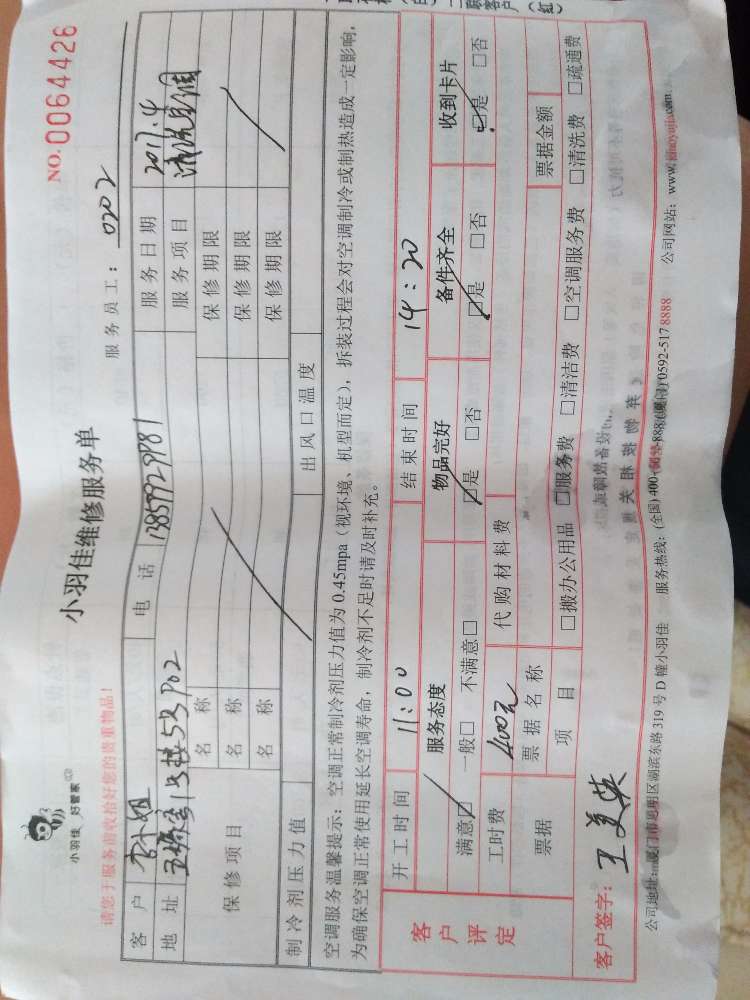 小羽佳 好管家
小羽佳维修服务单
NO.0064426
请您于服务前收拾好您的贵重物品！
服务员工： 0202
客户 小姐 电话 服务日期 2017.4
地址 服务项目
保修项目 名称 保修期限
名称 保修期限
名称 保修期限
制冷剂压力值 出风口温度
空调服务温馨提示：空调正常制冷剂压力值为 0.45mpa（视环境、机型而定），拆装过程会对空调制冷或制热造成一定影响，
为确保空调正常使用延长空调寿命，制冷剂不足时请及时补充。
客户评定
开工时间 11:00 结束时间 14:20
服务态度 物品完好 备件齐全 收到卡片
满意☑ 一般□ 不满意□ ☑是 □否 ☑是 □否 ☑是 □否
工时费 400元 代购材料费
票据 票据名称 票据金额
项目 □搬办公用品 □服务费 □清洁费 □空调服务费 □清洗费 □疏通费
客户签字： 王美英
公司地址：厦门市思明区湖滨东路 319 号 D 幢小羽佳 服务热线：(全国) 400 (厦门) 0592-5178888 公司网站：www.xiaoyujia.com